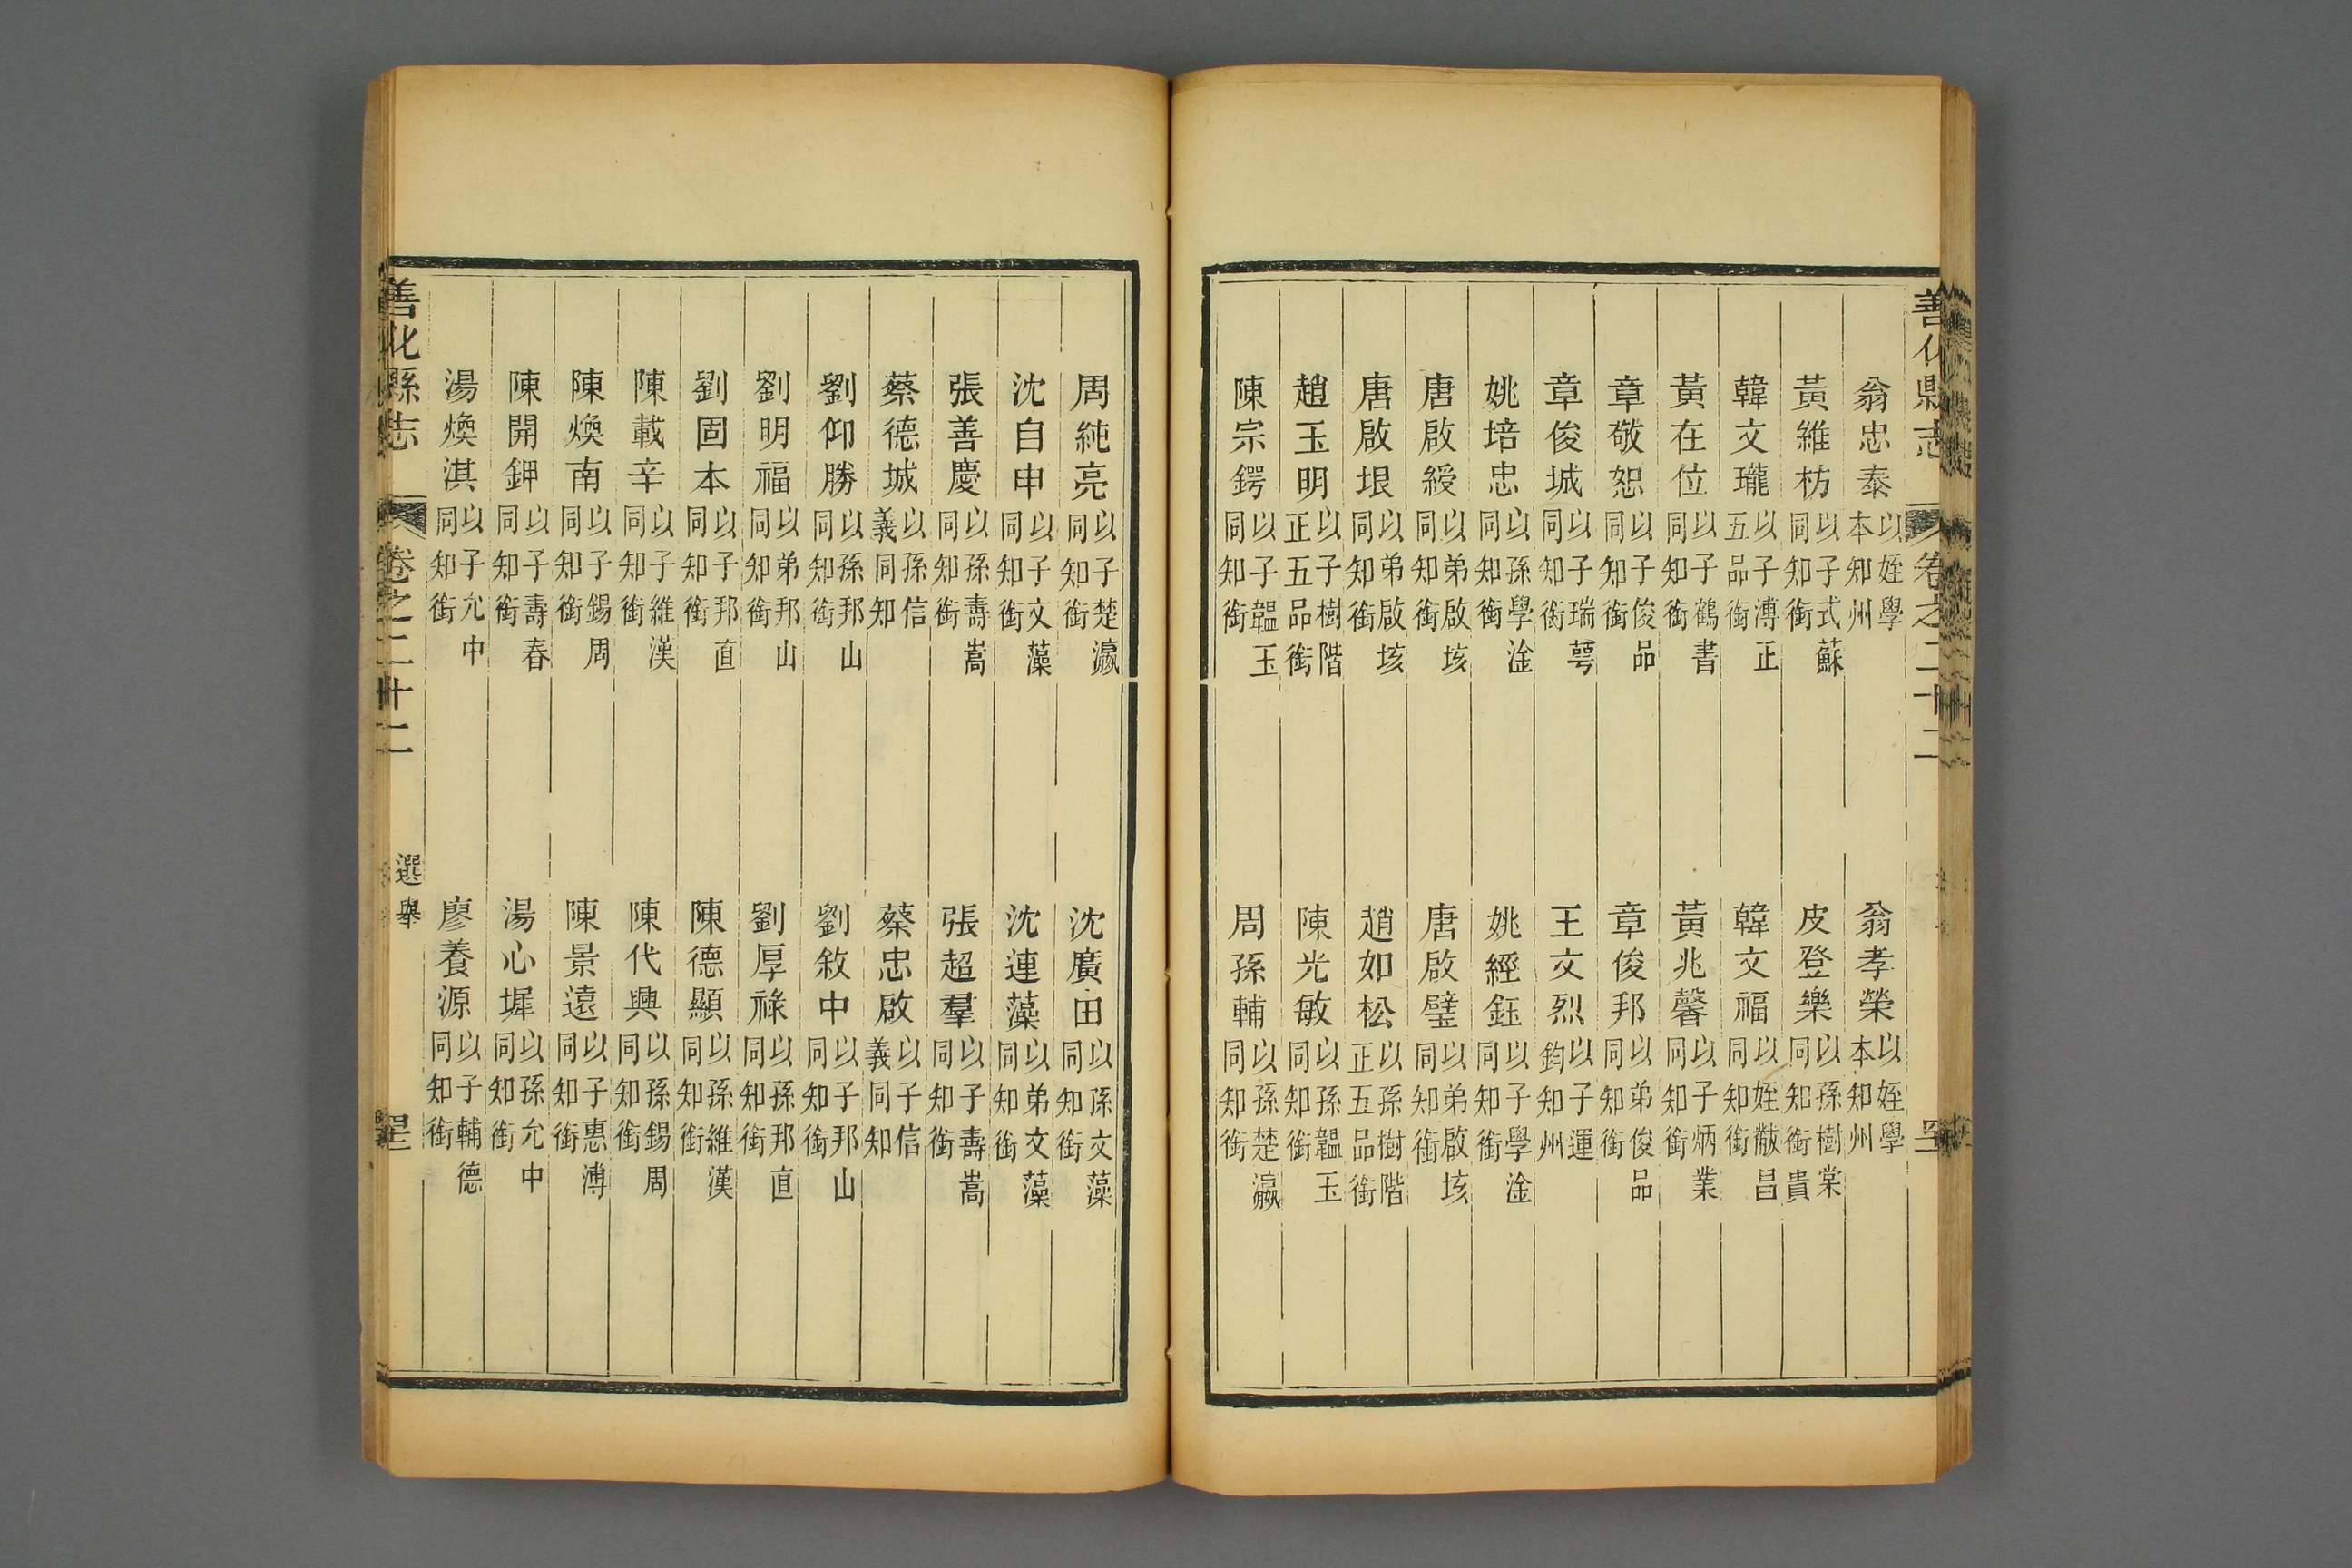 善化縣志 卷之二十二
翁忠泰 以姪學本知州 翁孝榮 以姪學本知州
黃維枋 以子式蘇同知銜 皮登樂 以孫樹棠同知銜貴
韓文瓏 以子溥正五品銜 韓文福 以姪黻昌同知銜
黃在位 以子鶴書同知銜 黃兆馨 以子炳業同知銜
章敬恕 以子俊品同知銜 章俊邦 以弟俊品同知銜
章俊城 以子瑞萼同知銜 王文烈 以子運鈞知州
姚培忠 以孫學淦同知銜 姚經鈺 以子學淦同知銜
唐啟綬 以弟啟垓同知銜 唐啟璧 以弟啟垓同知銜
唐啟垠 以弟啟垓同知銜 趙如松 以孫樹階正五品銜
趙玉明 以子樹階正五品銜 陳光敏 以孫韞玉同知銜
陳宗鍔 以子韞玉同知銜 周孫輔 以孫楚瀛同知銜
周純亮 以子楚瀛同知銜 沈廣田 以孫文藻同知銜
沈自申 以子文藻同知銜 沈連藻 以弟文藻同知銜
張善慶 以孫壽嵩同知銜 張超羣 以子壽嵩同知銜
蔡德城 以孫信義同知 蔡忠啟 以子信義同知
劉仰勝 以孫邦山同知銜 劉敘中 以子邦山同知銜
劉明福 以弟邦山同知銜 劉厚祿 以孫邦直同知銜
劉固本 以子邦直同知銜 陳德顯 以孫維漢同知銜
陳載辛 以子維漢同知銜 陳代興 以孫錫周同知銜
陳煥南 以子錫周同知銜 陳景遠 以子惠溥同知銜
陳開鉀 以子壽春同知銜 湯心墀 以孫允中同知銜
湯煥淇 以子允中同知銜 廖養源 以子輔德同知銜
善化縣志 卷之二十二 選舉